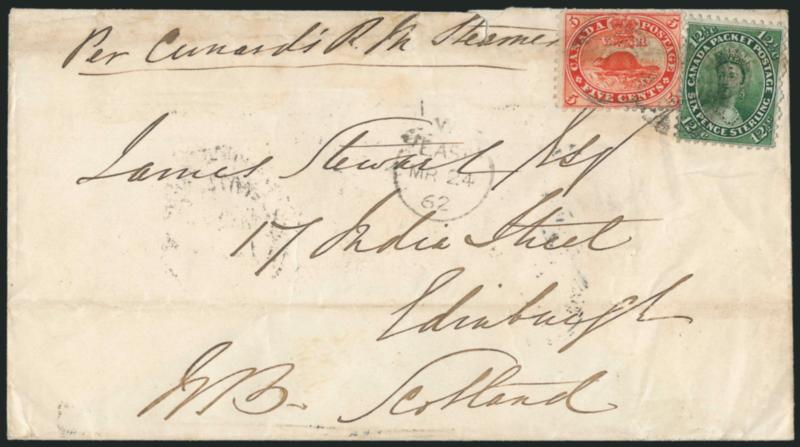 Per Cunard's R. M. Steamer
5 CANADA POSTAGE 5
5 FIVE CENTS 5
12½c CANADA PACKET POSTAGE 12½c
SIX PENCE STERLING
12½c 12½c
James Stewart Esq
EAST
MR 24
62
17 India Street
Edinburgh
N B- Scotland